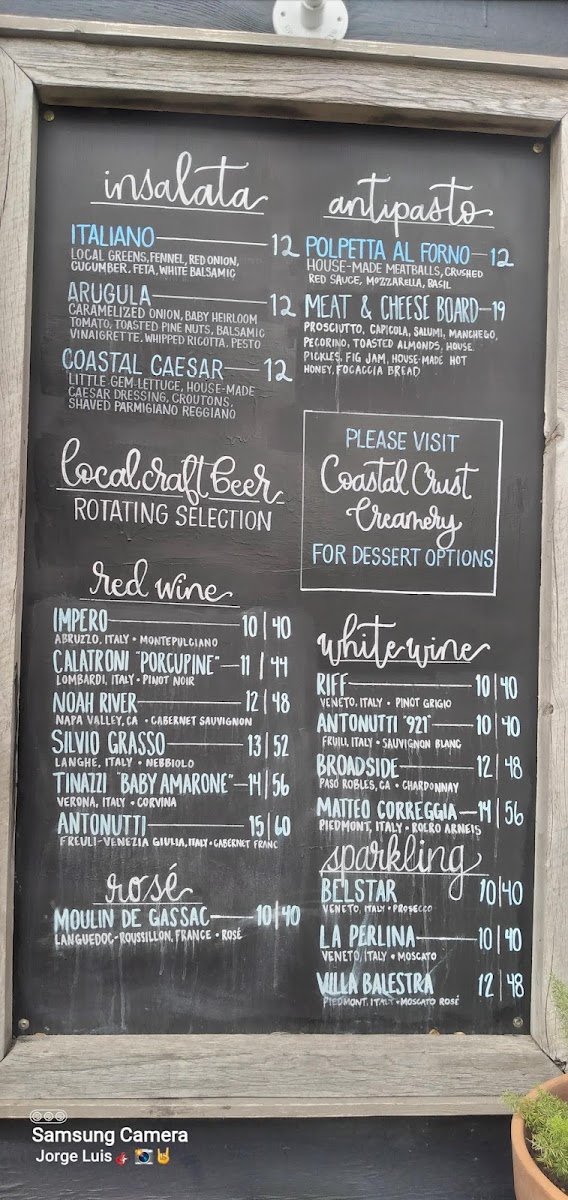 insalata
ITALIANO 12
LOCAL GREENS, FENNEL, RED ONION,
CUCUMBER, FETA, WHITE BALSAMIC
ARUGULA 12
CARAMELIZED ONION, BABY HEIRLOOM
TOMATO, TOASTED PINE NUTS, BALSAMIC
VINAIGRETTE, WHIPPED RICOTTA, PESTO
COASTAL CAESAR 12
LITTLE GEM LETTUCE, HOUSE-MADE
CAESAR DRESSING, CROUTONS,
SHAVED PARMIGIANO REGGIANO
local craft beer
ROTATING SELECTION
red wine
IMPERO 10 | 40
ABRUZZO, ITALY • MONTEPULCIANO
CALATRONI "PORCUPINE" 11 | 44
LOMBARDI, ITALY • PINOT NOIR
NOAH RIVER 12 | 48
NAPA VALLEY, CA • CABERNET SAUVIGNON
SILVIO GRASSO 13 | 52
LANGHE, ITALY • NEBBIOLO
TINAZZI "BABY AMARONE" 14 | 56
VERONA, ITALY • CORVINA
ANTONUTTI 15 | 60
FREULI-VENEZIA GIULIA, ITALY • CABERNET FRANC
rosé
MOULIN DE GASSAC 10 | 40
LANGUEDOC-ROUSSILLON, FRANCE • ROSÉ
antipasto
POLPETTA AL FORNO 12
HOUSE-MADE MEATBALLS, CRUSHED
RED SAUCE, MOZZARELLA, BASIL
MEAT & CHEESE BOARD 19
PROSCIUTTO, CAPICOLA, SALUMI, MANCHEGO,
PECORINO, TOASTED ALMONDS, HOUSE
PICKLES, FIG JAM, HOUSE-MADE HOT
HONEY, FOCACCIA BREAD
PLEASE VISIT
Coastal Crust
Creamery
FOR DESSERT OPTIONS
white wine
RIFF 10 | 40
VENETO, ITALY • PINOT GRIGIO
ANTONUTTI "921" 10 | 40
FRUILI, ITALY • SAUVIGNON BLANC
BROADSIDE 12 | 48
PASO ROBLES, CA • CHARDONNAY
MATTEO CORREGGIA 14 | 56
PIEDMONT, ITALY • ROERO ARNEIS
sparkling
BELSTAR 10 | 40
VENETO, ITALY • PROSECCO
LA PERLINA 10 | 40
VENETO, ITALY • MOSCATO
VILLA BALESTRA 12 | 48
PIEDMONT, ITALY • MOSCATO ROSÉ
Samsung Camera
Jorge Luis